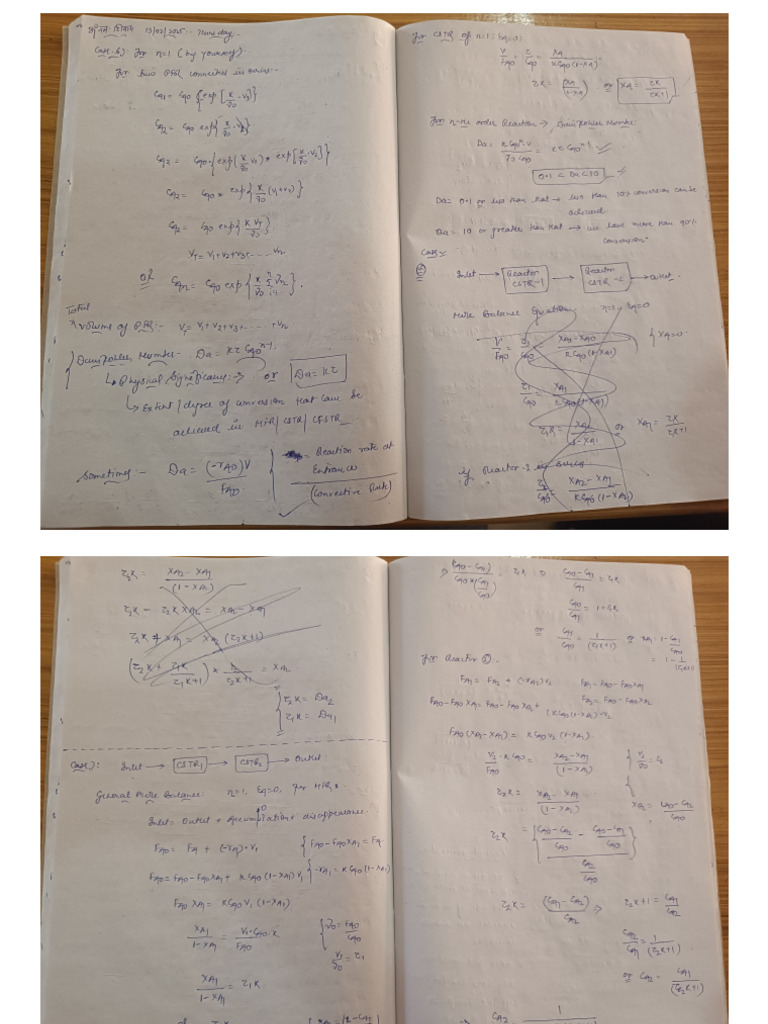 13/02/2025. Thursday.
Case. 6: For n=1 (by yourself).
For two PFR connected in series:
CA1 = CA0 {exp[K/ν0 · V1]}
CA2 = CA1 exp{K/ν0 · V2}
CA2 = CA0 · {exp(K/ν0 V1) * exp[K/ν0 · V2]}
CA2 = CA0 * exp{K/ν0 (V1+V2)}
CA2 = CA0 exp{K VT/ν0}
VT = V1+V2+V3+.... Vn
OR CAn = CA0 exp{K/ν0 Σ Vn}.
Total
* Volume of PFR:- VT = V1+V2+V3+.....+Vn
Damköhler Number- Da = Kτ CA0^n-1.
↳ Physical Significance:→ or Da = Kτ
↳ Extent/degree of conversion that can be
achieved in MFR/CSTR/
Sometimes:- Da = (-rA0)V/FA0 { = Reaction rate at Entrance/(Convective Rate)
For CSTR of n=1: εA=0:
V/FA0 = τ/CA0 = XA/KCA0(1-XA)
τK = XA/1-XA or XA = τK/τK+1
For n-th order Reaction → Damköhler Number
Da = KCA0^n·V/ν0 CA0 = Kτ CA0^n-1
0.1 < Da < 10
Da = 0.1 or less than that → less than 10% conversion can be
achieved
Da = 10 or greater than that → we have more than 90%
conversion"
Case:-
Inlet → Reactor CSTR-1 → Reactor CSTR-2 → Outlet.
Mole Balance Equation: n=1, εA=0
V/FA0 = τ1/CA0 = XA1-XA0/KCA0(1-XA1) { XA0=0.
τ1/CA0 = XA1/KCA0(1-XA1)
τ1K = XA1/1-XA1 or XA1 = τK/τK+1
If Reactor-2 in series:
τ2/CA0 = XA2-XA1/KCA0(1-XA2)
τ2K = XA2-XA1/(1-XA2)
τ2K - τ2K XA2 = XA2 - XA1
τ2K + XA1 = XA2(τ2K+1)
(τ2K + τ1K/τ1K+1) * 1/τ2K+1 = XA2
{ τ2K = Da2
τ1K = Da1
Case): Inlet → CSTR1 → CSTR2 → Outlet
General Mole Balance: n=1, εA=0, For MFR
Inlet = Outlet + Accumulation + disappearance. 0
FA0 = FA + (-rA)·V1 { FA0-FA0XA1 = FA1
FA0 = FA0-FA0XA1 + KCA0(1-XA1)V1 { -rA1 = KCA0(1-XA1)
FA0 XA1 = KCA0 V1 (1-XA1)
XA1/1-XA1 = V1·CA0·K/FA0 { ν0 = FA0/CA0
V1/ν0 = τ1
XA1/1-XA1 = τ1K.
(CA0-CA1)/CA0×(CA1/CA0) = τ1K ⇒ CA0-CA1/CA1 = τ1K
CA0/CA1 = 1+τ1K
or CA1/CA0 = 1/(τ1K+1) or XA1 = 1-CA1/CA0
= 1-1/(τ1K+1)
For Reactor ②.
FA1 = FA2 + (-rA2)V2 FA1 = FA0-FA0XA1
FA0-FA0XA1 = FA0-FA0XA2+ FA2 = FA0-FA0XA2
(KCA0(1-XA2)·V2
FA0(XA2-XA1) = KCA0V2(1-XA2).
V2·KCA0/FA0 = XA2-XA1/(1-XA2) { V2/ν0 = τ2
τ2K = XA2-XA1/(1-XA2) { XA2 = CA0-CA2/CA0
τ2K = {CA0-CA2/CA0 - CA0-CA1/CA0}/CA2/CA0
τ2K = (CA1-CA2)/CA2 ⇒ τ2K+1 = CA1/CA2
CA2/CA1 = 1/(τ2K+1)
or CA2 = CA1/(τ2K+1)